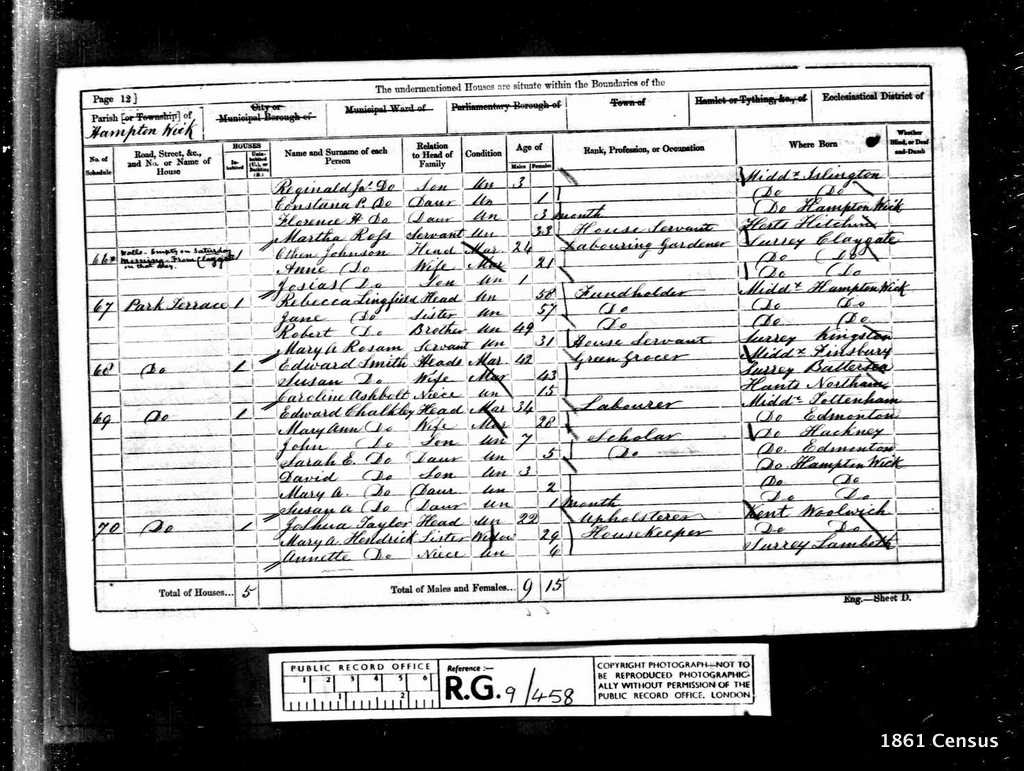 The undermentioned Houses are situate within the Boundaries of the
Page 12]
Parish [or Township] of
Hampton Wick
City or
Municipal Borough of
Municipal Ward of
Parliamentary Borough of
Town of
Hamlet or Tything, &c., of
Ecclesiastical District of
No. of Schedule
Road, Street, &c., and No. or Name of House
HOUSES
Inhabited
Uninhabited (U.), or Building (B.)
Name and Surname of each Person
Relation to Head of Family
Condition
Age of
Males
Females
Rank, Profession, or Occupation
Where Born
Whether Blind, or Deaf-and-Dumb
Reginald Jas Do Son Un 3 Middx Islington
Constana P. Do Daur Un 1 Do Do
Florence H Do Daur Un 3 month Do Hampton Wick
Martha Ross Servant Un 33 House Servant Herts Hitchin
66 1 Johnson Head Mar 24 Labouring Gardener Surrey Claygate
Anne Do Wife Mar 21 Do Do
Josias Do Son Un 1 Do Do
67 Park Terrace 1 Rebecca Lingfield Head Un 58 Fundholder Middx Hampton Wick
Jane Do Sister Un 57 Do Do Do
Robert Do Brother Un 49 Do Do Do
Mary A Rosam Servant Un 31 House Servant Surrey Kingston
68 Do 1 Edward Smith Head Mar 42 Green Grocer Middx Finsbury
Susan Do Wife Mar 43 Surrey Battersea
Caroline Ashbolt Niece Un 15 Hants Northam
69 Do 1 Edward Chalkley Head Mar 34 Labourer Middx Tottenham
Mary Ann Do Wife Mar 28 Do Edmonton
John Do Son Un 7 Scholar Do Hackney
Sarah E. Do Daur Un 5 Do Do Edmonton
David Do Son Un 3 Do Hampton Wick
Mary A. Do Daur Un 2 Do Do
Susan A Do Daur Un 1 month Do Do
70 Do 1 Joshua Taylor Head Un 22 Upholsterer Kent Woolwich
Mary A Hendrick Sister Widow 29 Housekeeper Do Do
Annette Do Niece Un 4 Surrey Lambeth
Total of Houses... 5 Total of Males and Females... 9 15
Eng.—Sheet D.
PUBLIC RECORD OFFICE
1 2 3 4 5 6
1 2
Reference :—
R.G. 9/458
COPYRIGHT PHOTOGRAPH—NOT TO
BE REPRODUCED PHOTOGRAPHIC-
ALLY WITHOUT PERMISSION OF THE
PUBLIC RECORD OFFICE, LONDON
1861 Census